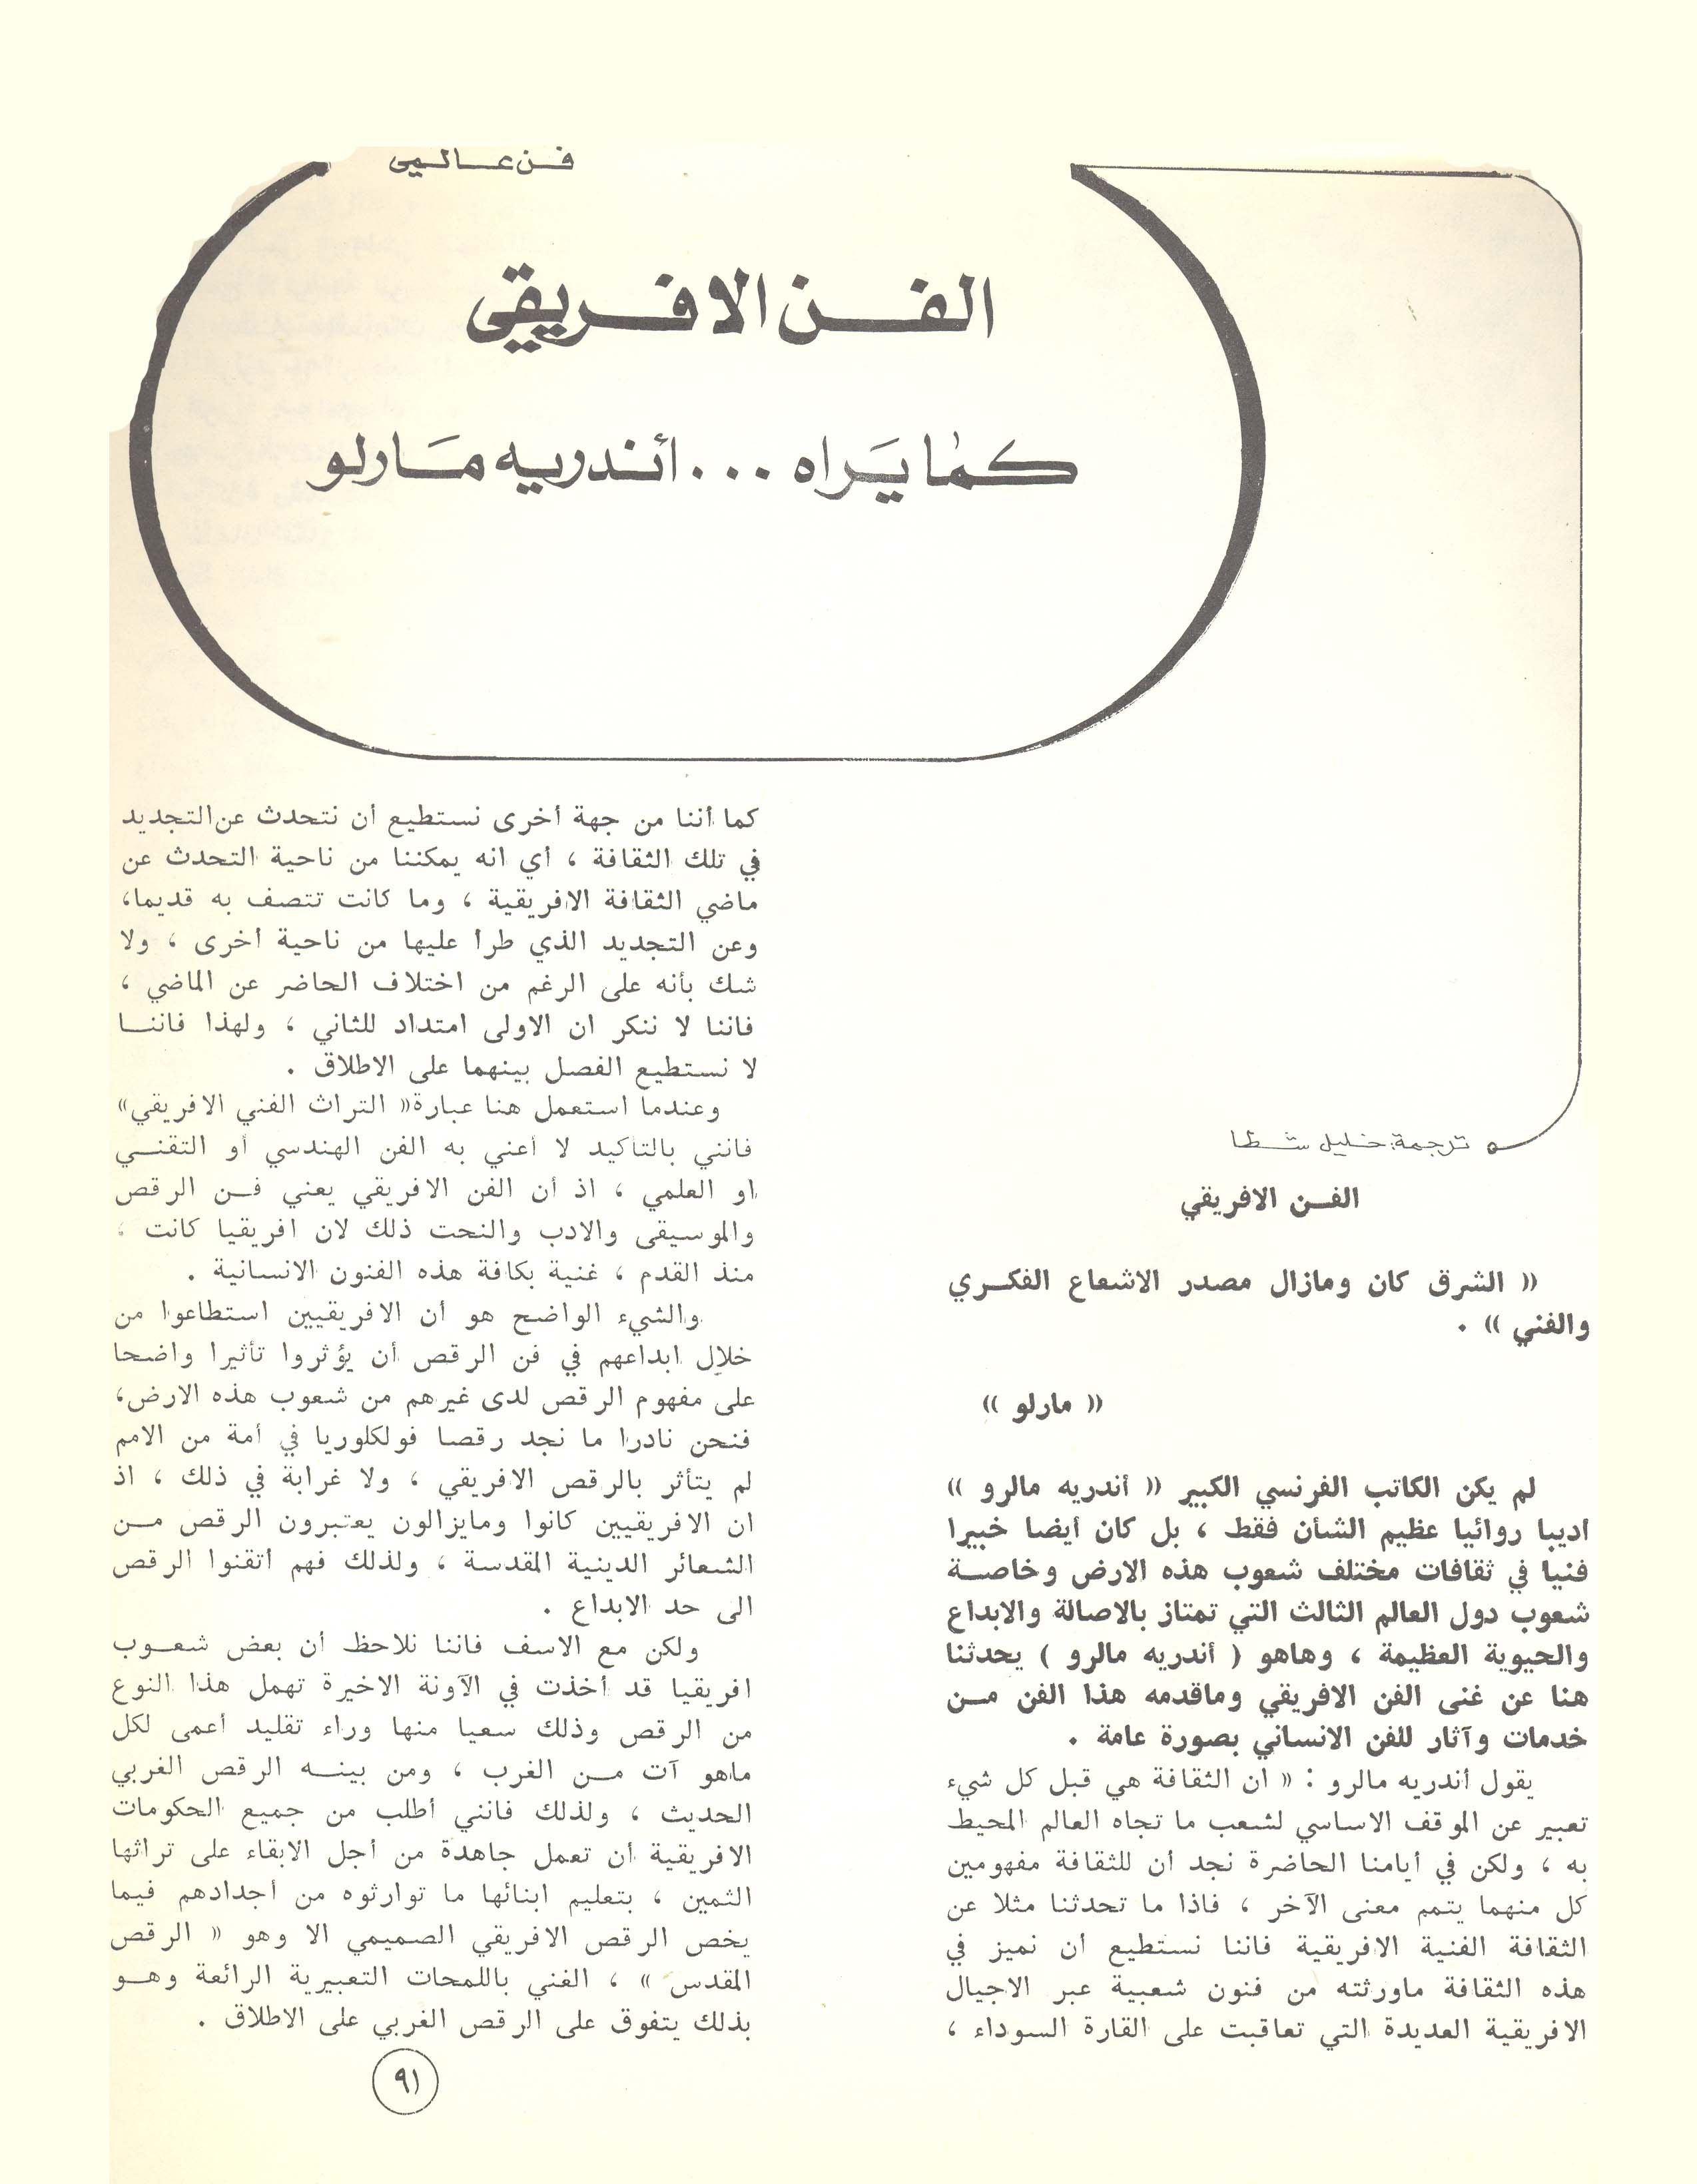 فن عالمي
الفن الافريقي
كما يراه ... أندريه مارلو
ترجمة: خليل شطا
الفن الافريقي
« الشرق كان ومازال مصدر الاشعاع الفكري
والفني » .
« مارلو »
لم يكن الكاتب الفرنسي الكبير « أندريه مالرو »
أديبا روائيا عظيم الشأن فقط ، بل كان أيضا خبيرا
فنيا في ثقافات مختلف شعوب هذه الارض وخاصة
شعوب دول العالم الثالث التي تمتاز بالاصالة والابداع
والحيوية العظيمة ، وهاهو ( أندريه مالرو ) يحدثنا
هنا عن غنى الفن الافريقي وماقدمه هذا الفن من
خدمات وآثار للفن الانساني بصورة عامة .
يقول أندريه مالرو : « ان الثقافة هي قبل كل شيء
تعبير عن الموقف الاساسي لشعب ما تجاه العالم المحيط
به ، ولكن في أيامنا الحاضرة نجد أن للثقافة مفهومين
كل منهما يتمم معنى الآخر ، فاذا ما تحدثنا مثلا عن
الثقافة الفنية الافريقية فاننا نستطيع أن نميز في
هذه الثقافة ماورثته من فنون شعبية عبر الاجيال
الافريقية العديدة التي تعاقبت على القارة السوداء ،
كما أننا من جهة أخرى نستطيع أن نتحدث عن التجديد
في تلك الثقافة ، أي انه يمكننا من ناحية التحدث عن
ماضي الثقافة الافريقية ، وما كانت تتصف به قديما،
وعن التجديد الذي طرأ عليها من ناحية أخرى ، ولا
شك بأنه على الرغم من اختلاف الحاضر عن الماضي ،
فاننا لا ننكر ان الاولى امتداد للثاني ، ولهذا فاننا
لا نستطيع الفصل بينهما على الاطلاق .
وعندما استعمل هنا عبارة« التراث الفني الافريقي»
فانني بالتأكيد لا أعني به الفن الهندسي أو التقني
او العلمي ، اذ أن الفن الافريقي يعني فن الرقص
والموسيقى والادب والنحت ذلك لان افريقيا كانت ،
منذ القدم ، غنية بكافة هذه الفنون الانسانية .
والشيء الواضح هو أن الافريقيين استطاعوا من
خلال ابداعهم في فن الرقص أن يؤثروا تأثيرا واضحا
على مفهوم الرقص لدى غيرهم من شعوب هذه الارض،
فنحن نادرا ما نجد رقصا فولكلوريا في أمة من الامم
لم يتأثر بالرقص الافريقي ، ولا غرابة في ذلك ، اذ
ان الافريقيين كانوا ومايزالون يعتبرون الرقص من
الشعائر الدينية المقدسة ، ولذلك فهم أتقنوا الرقص
الى حد الابداع .
ولكن مع الاسف فاننا نلاحظ أن بعض شعوب
افريقيا قد أخذت في الآونة الاخيرة تهمل هذا النوع
من الرقص وذلك سعيا منها وراء تقليد أعمى لكل
ماهو آت من الغرب ، ومن بينه الرقص الغربي
الحديث ، ولذلك فانني أطلب من جميع الحكومات
الافريقية أن تعمل جاهدة من أجل الابقاء على تراثها
الثمين ، بتعليم ابنائها ما توارثوه من أجدادهم فيما
يخص الرقص الافريقي الصميمي الا وهو « الرقص
المقدس » ، الغني باللمحات التعبيرية الرائعة وهو
بذلك يتفوق على الرقص الغربي على الاطلاق .
٩١